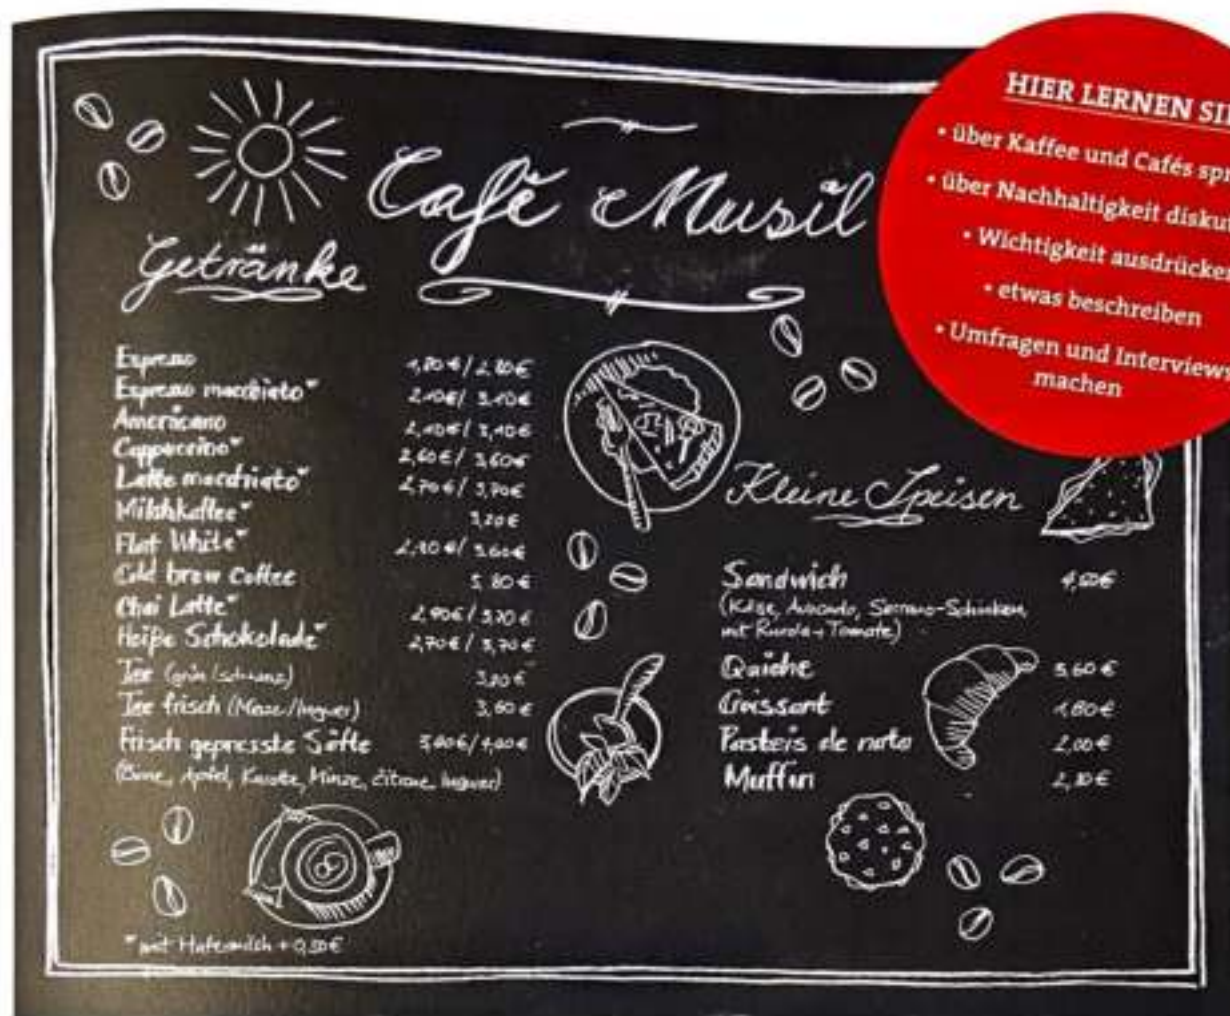 HIER LERNEN SIE
• über Kaffee und Cafés
• über Nachhaltigkeit
• Wichtigkeit ausdrücken
• etwas beschreiben
• Umfragen und Interviews
machen
Café Musil
Getränke
Espresso 1,80€/2,80€
Espresso macchiato* 2,10€/3,10€
Americano 2,10€/3,10€
Cappuccino* 2,60€/3,60€
Latte macchiato* 2,70€/3,70€
Milchkaffee* 3,20€
Flat White* 3,60€
Cold brew Coffee 3,80€
Chai Latte*
Heiße Schokolade* 2,70€/3,70€
Tee (grün/schwarz) 3,20€
Tee frisch (Minze/Ingwer) 3,60€
Frisch gepresste Säfte
(Birne, Apfel, Karotte, Minze, Zitrone, Ingwer)
*mit Hafermilch + 0,50€
Kleine Speisen
Sandwich
(Käse, Avocado, Serrano-Schinken,
mit Rucola + Tomate)
Quiche 3,60€
Croissant 1,80€
Pasteis de nata 2,00€
Muffin